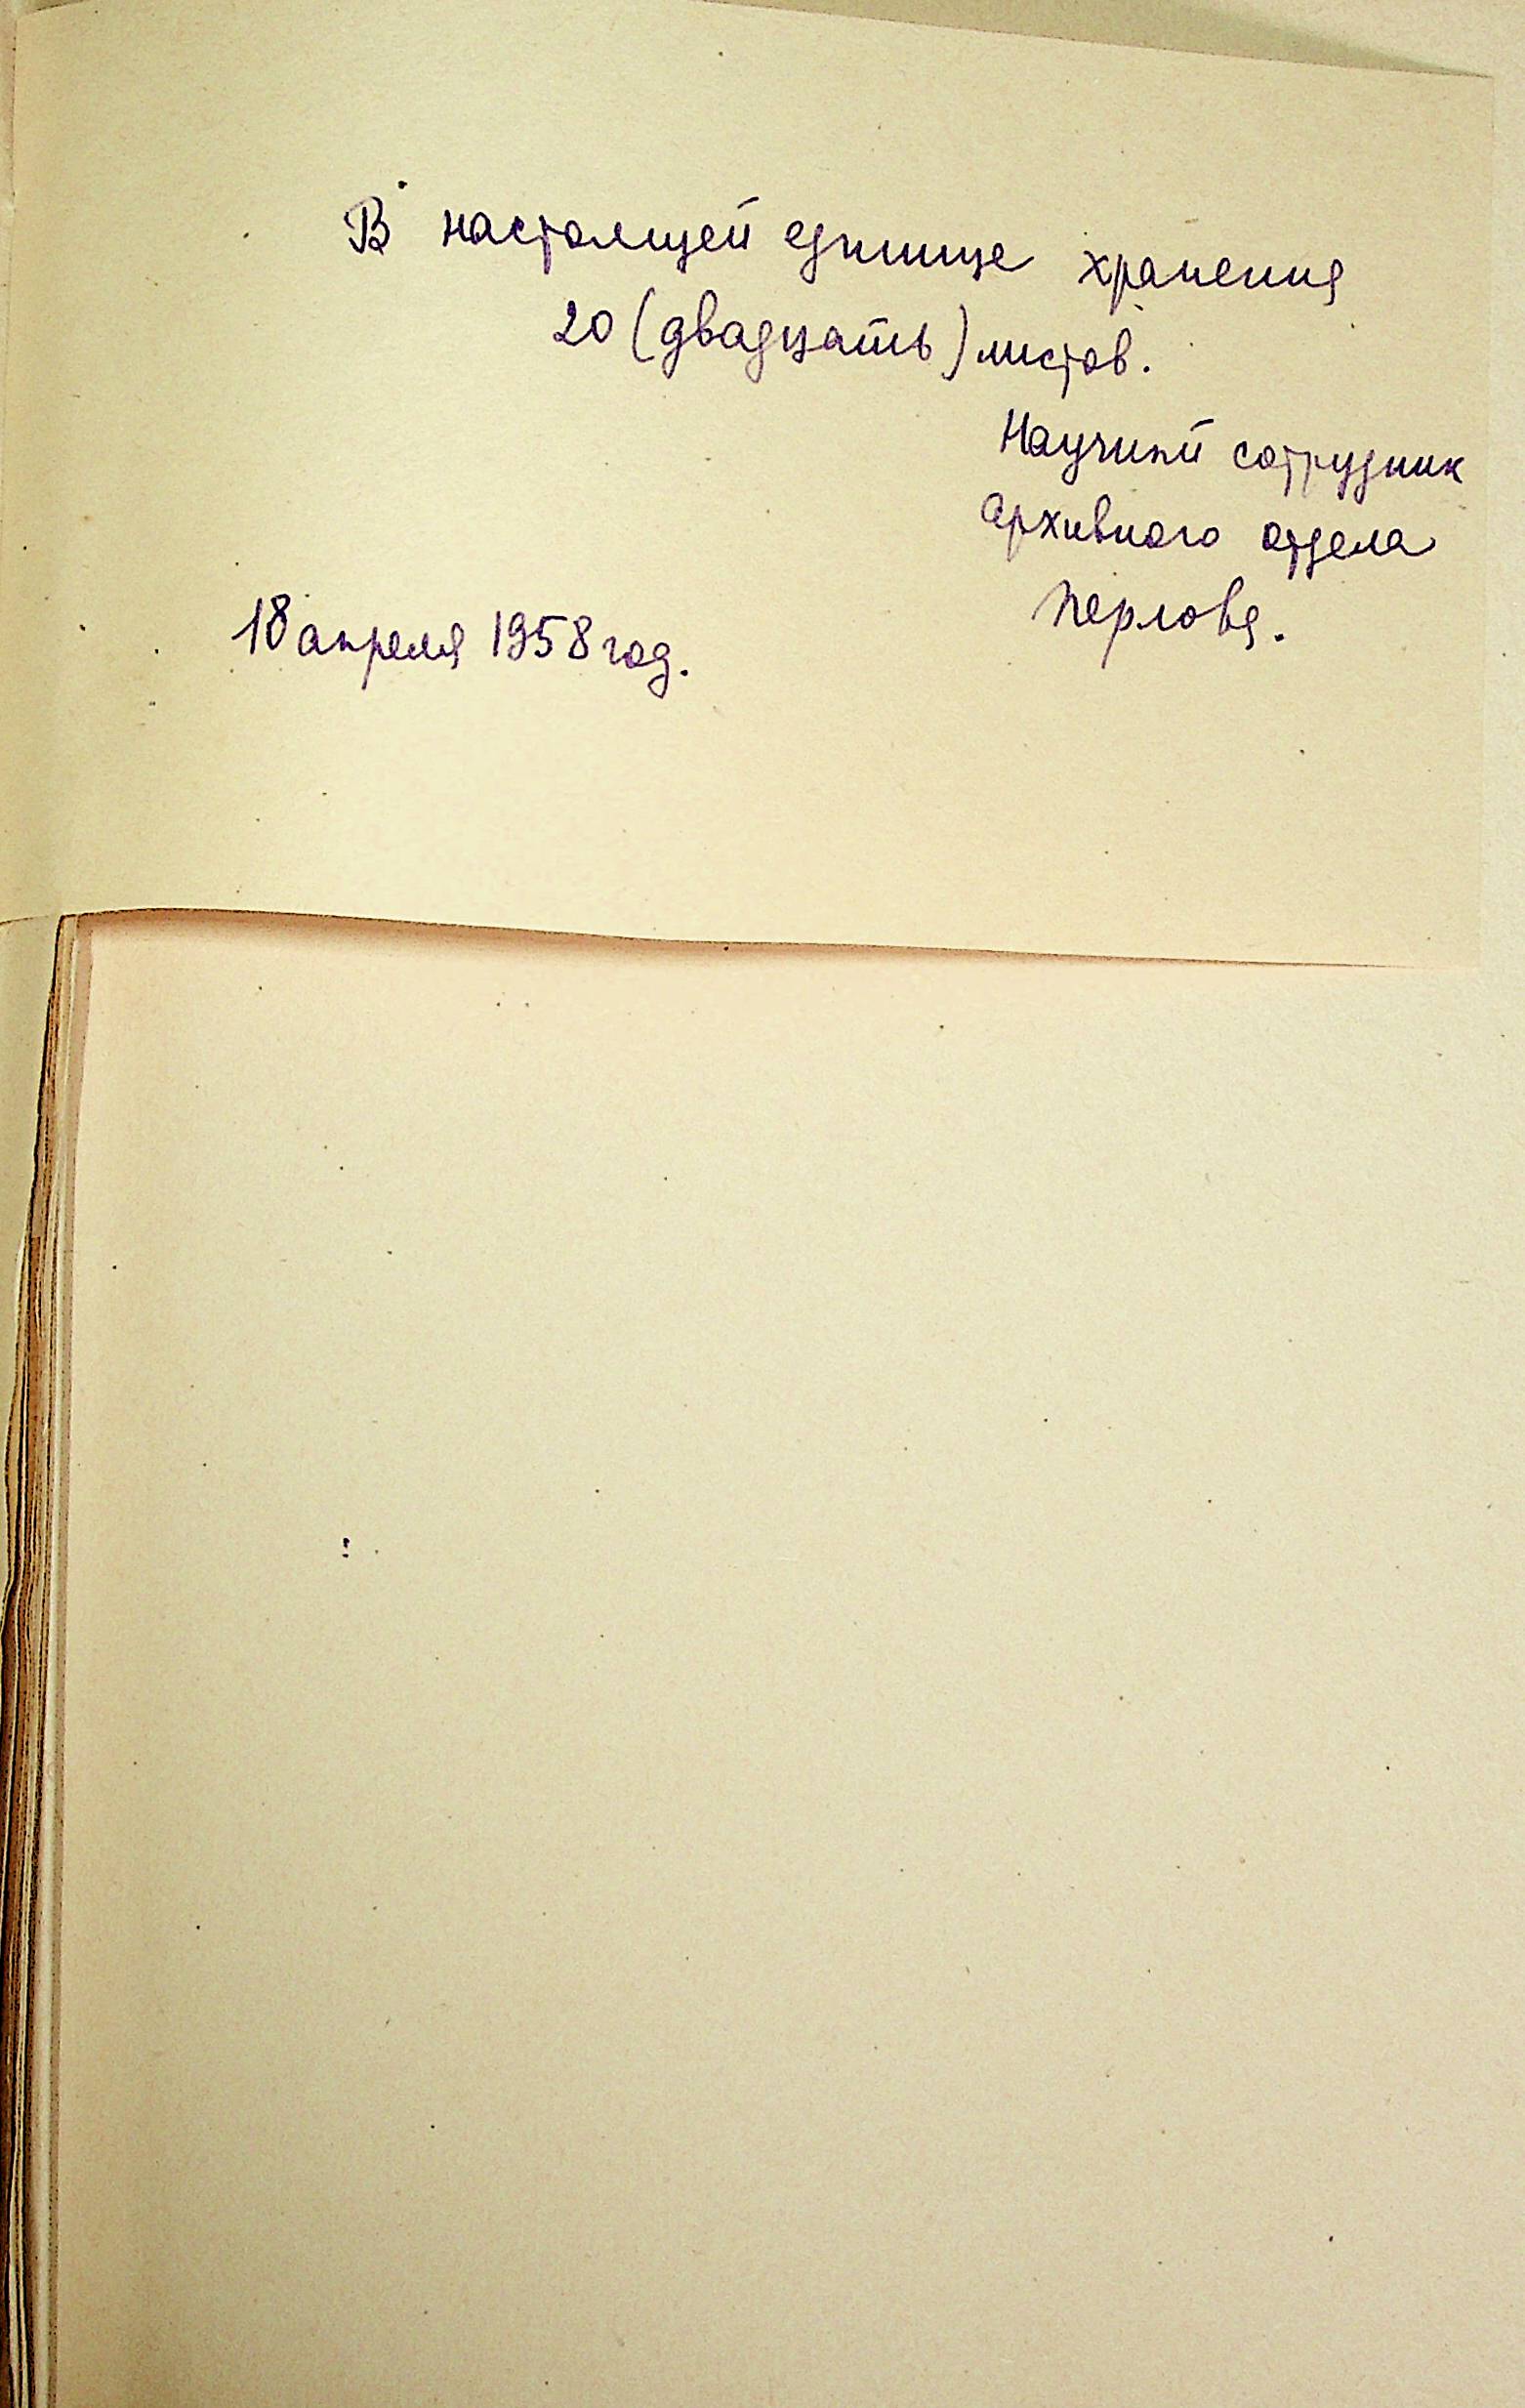 В настоящей единице хранения
20 (двадцать) листов.
Научный сотрудник
архивного отдела
Перлова.
18 апреля 1958 год.